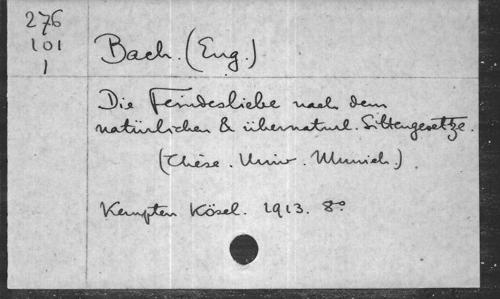 276
101
1
Bach. (Eug.)
Die Feindesliebe nach dem
natürlichen & übernatürl. Sittengesetze.
(Thèse. Univ. Munich.)
Kempten Kösel. 1913. 8º